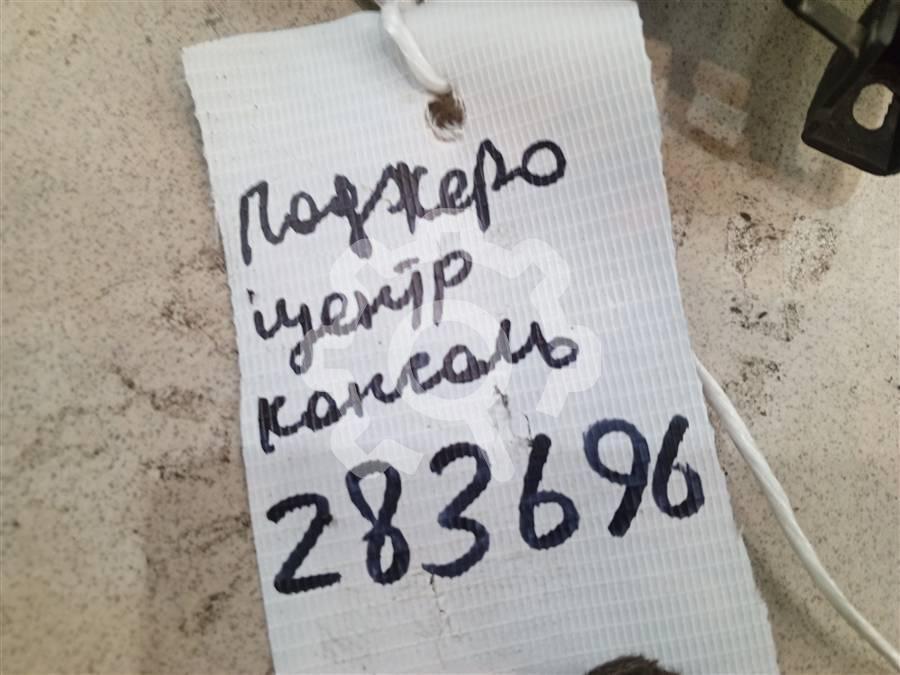 Поджеро
центр
консоль
283696